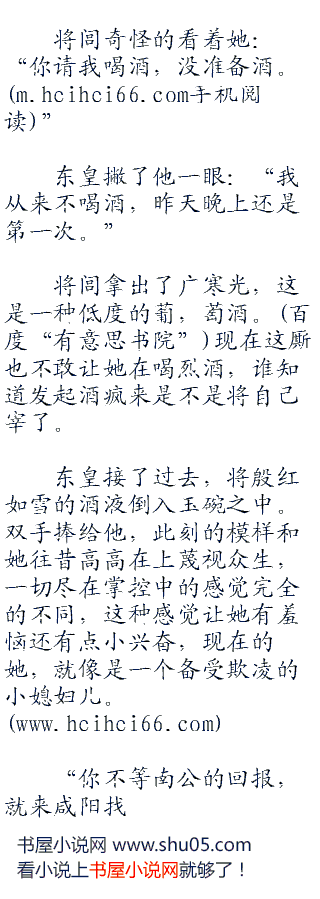 将闾奇怪的看着她：
“你请我喝酒，没准备酒。
(m.hcihci66.com手机阅
读)”
东皇撇了他一眼：“我
从来不喝酒，昨天晚上还是
第一次。”
将闾拿出了广寒光，这
是一种低度的葡，萄酒。(百
度“有意思书院”)现在这厮
也不敢让她在喝烈酒，谁知
道发起酒疯来是不是将自己
宰了。
东皇接了过去，将殷红
如雪的酒液倒入玉碗之中。
双手捧给他，此刻的模样和
她往昔高高在上蔑视众生，
一切尽在掌控中的感觉完全
的不同，这种感觉让她有羞
恼还有点小兴奋，现在的
她，就像是一个备受欺凌的
小媳妇儿。
(www.hcihci66.com)
“你不等南公的回报，
就来咸阳找
书屋小说网 www.shu05.com
看小说上书屋小说网就够了！